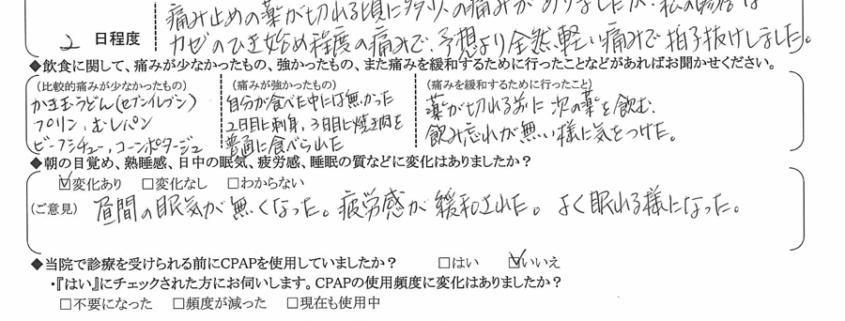 痛み止めの薬が切れる頃に多少の痛みがありましたが、私の場合は
2 日程度
カゼのひき始め程度の痛みで、予想より全然軽い痛みで拍子抜けしました。
◆飲食に関して、痛みが少なかったもの、強かったもの、また痛みを緩和するために行ったことなどがあればお聞かせください。
(比較的痛みが少なかったもの) (痛みが強かったもの) (痛みを緩和するために行ったこと)
かきむうどん(セブンイレブン) 自分が食べた中には無かった 薬が切れる前に次の薬を飲む。
プリン、むしパン 2日目に刺身、3日目に焼き肉を 飲み忘れが無い様に気をつけた。
ビーフシチュー、コーンポタージュ 普通に食べられた
◆朝の目覚め、熟睡感、日中の眠気、疲労感、睡眠の質などに変化はありましたか?
☑変化あり □変化なし □わからない
(ご意見) 昼間の眠気が無くなった。疲労感が緩和された。よく眠れる様になった。
◆当院で診療を受けられる前にCPAPを使用していましたか? □はい ☑いいえ
・『はい』にチェックされた方にお伺いします。CPAPの使用頻度に変化はありましたか?
□不要になった □頻度が減った □現在も使用中